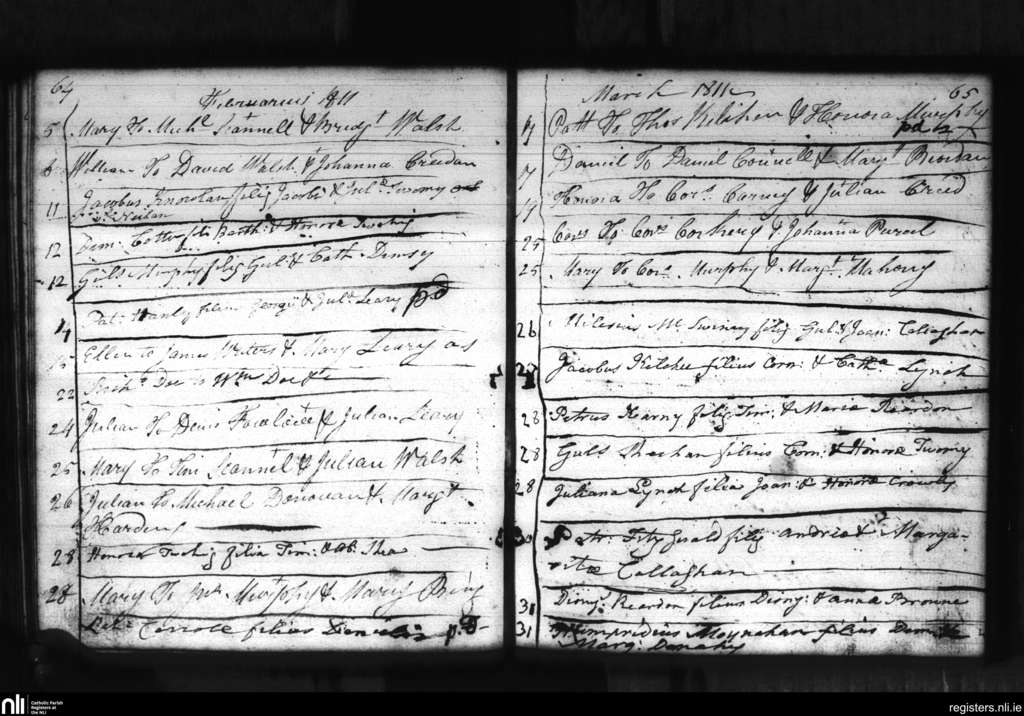 64
Februarius 1811
5 Mary To Michl Scannell & Bridgt Walsh
6 William To David Walsh & Johanna Creedan
11 Jacobus filig Jacobi & Twomy
12 Dem: Bartht & Honora
12 Guls Murphy filig Gul & Cath Demsy
14 Pat: Hanly filius Georgii & Leary pd
Ellen to James Waters & Mary Leary as
22 Doe to Wm Doe &c
24 Julian To Denis & Julian Leary
25 Mary To Tim Scannel & Julian Walsh
26 Julian To Michael Donovan & Margt
Harding
28 Honora filia Tim: & Ab: Shea
28 Mary To Jno. Murphy & Mary
Carroll filius Danielis p.d
March 1811
65
4 Patt To Thos Kilihen & Honora Murphy
pd
7 Daniel To Daniel & Margt
Honora To Cors. & Julian Creed
25 Cors To Cors Corkery & Johanna Purcel
25 Mary To Cors. Murphy & Margt Mahony
26 Milesius Mc Swiney filig Gul & Joan: Callaghan
27 Jacobus filius Corn: & Catha Lynch
28 Petrus Harny filig Tim: & Maria Reardon
28 Guls Shechan filius Corn: & Honora Twomy
28 Juliana Lynch filia Joan: & Honora Crowly
30 Fitzgerald filig Andrice & Marga-
ritæ Callaghan
31 Diony: Reardon filius Diony: & Anna Browne
31 Humpridius Moynahan filius
Marg: Donahy
nli
Catholic Parish
Registers at
the NLI
registers.nli.ie